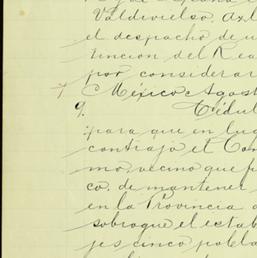 Valdivielso. Axl
el despacho de u
tincion del Rea
por considerar
México Agost
9. Cédul
para que en lug
contrajo el Con
mo, vecino que f
co, de mantener
en la Provincia d
sobrogue el estab
jes cinco pobla